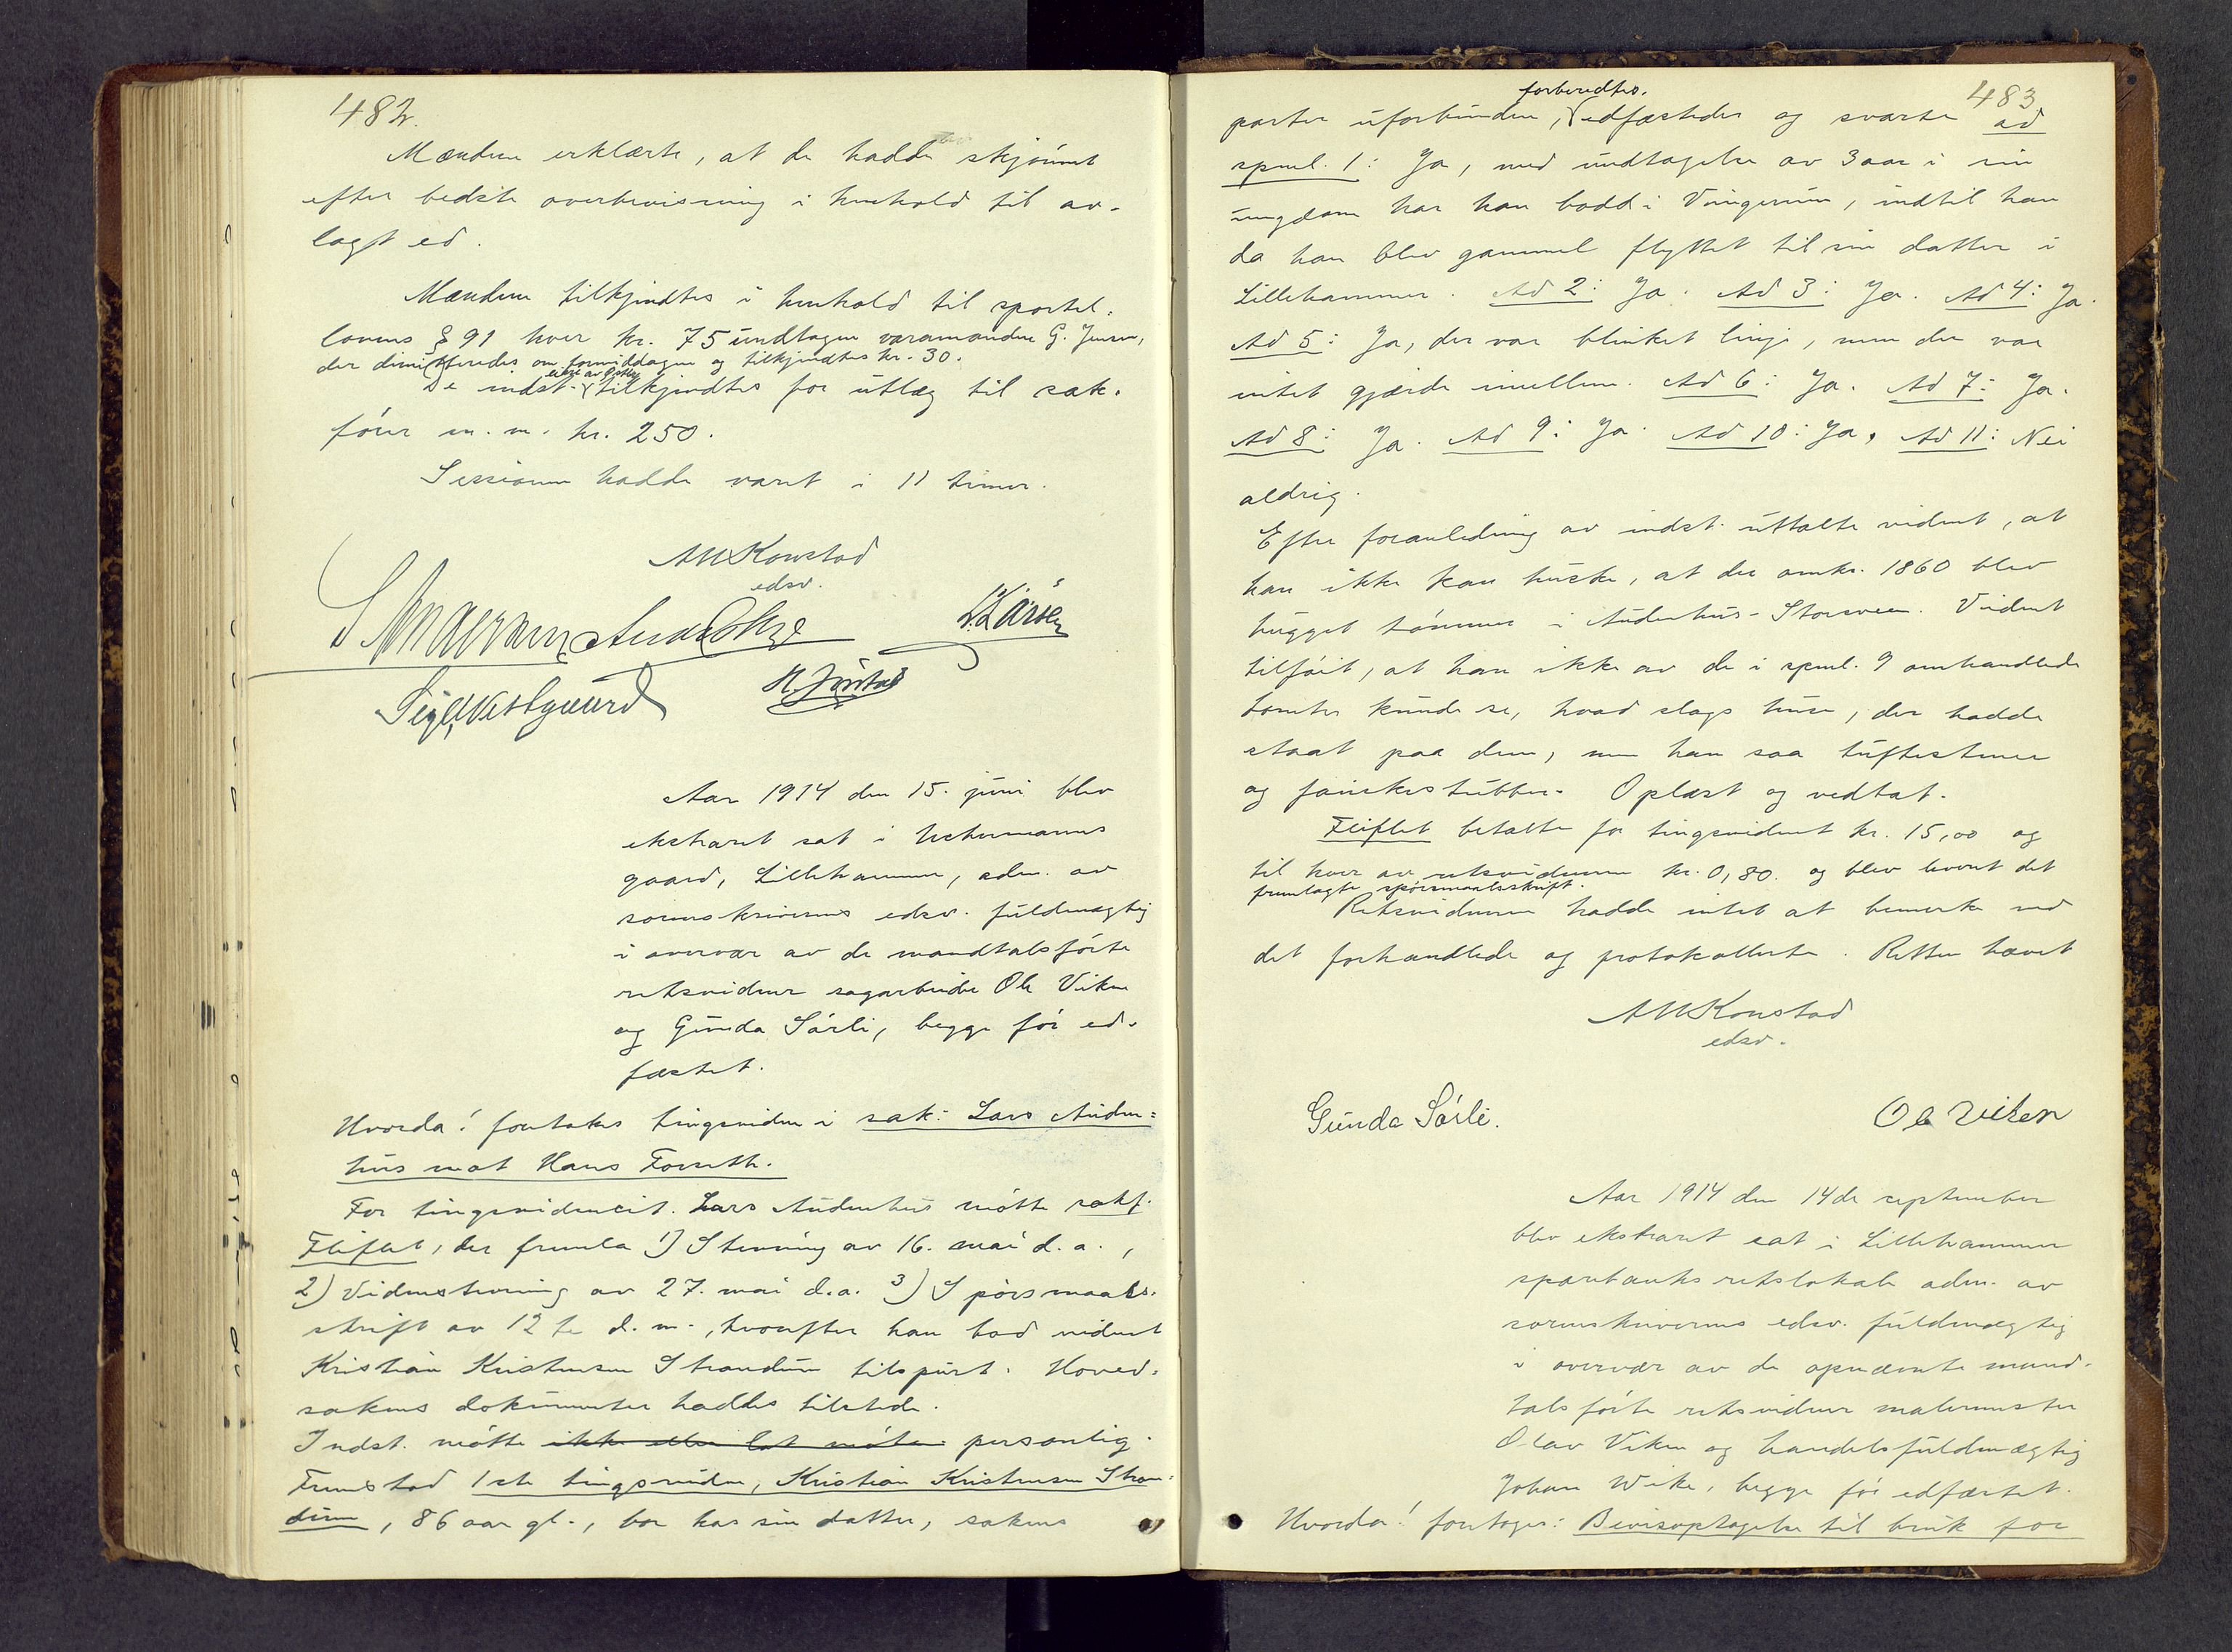 482.
Mændene erklærte, at de hadde skjønnet
efter bedste overbevisning i henhold til av-
lagt ed.
Mændene tilkjendtes i henhold til sportel-
lovens § 91 hver kr. 75 undtagen varamanden G. Jensen,
der dimitteredes om formiddagen og tilkjendtes kr. 30.
De indst. tilkjendtes for utlæg til sak-
fører m.m. kr. 250.
Sessionen hadde varet i 11 timer.
AMKonstad
edsv.
L. Larsen
Sig. Vestgaard
M. Jørstad
Aar 1914 den 15. juni blev
ekstraret sat i
gaard, Lillehammer, adm. av
sorenskriverens edsv. fuldmægtig
i overvær av de mandtalsførte
retsvidner sagarbeider Ole Viken
og Gunda Sørli, begge før ed-
fæstet.
Hvorda! foretokes tingsvidne i sak: Lars Auden-
hus mot Hans Forseth.
For tingsvidnecit. Lars Audenhus møtte sakf.
Fliflet, der fremla 1) Stevning av 16. mai d.a.,
2) Vidnestevning av 27. mai d.a. 3) Spørsmaals-
skrift av 12te d.m., hvorefter han bad vidnet
Kristian Kristensen Strandum tilspurt. Hoved-
sakens dokumenter haddes tilstede.
Indst. møtte ikke eller lot møte personlig.
Fremstod 1ste tingsvidne, Kristian Kristensen Stran-
dum, 86 aar gl., bor hos sin datter, sakens
483
parter uforbunden, forberedtes. edfæstedes og svarte ad
spml. 1: Ja, med undtagelse av 3 aar i sin
ungdom har han bodd i Vingerum, indtil han
da han blev gammel flyttet til sin datter i
Lillehammer. Ad 2: Ja. Ad 3: Ja. Ad 4: Ja.
Ad 5: Ja, der var blinket linje, men der var
intet gjærde imellem. Ad 6: Ja. Ad 7: Ja.
Ad 8: Ja. Ad 9: Ja. Ad 10: Ja. Ad 11: Nei
aldrig.
Efter foranledning av indst. uttalte vidnet, at
han ikke kan huske, at der omkr. 1860 blev
hugget tømmer i Audenhus-Storsveen. Vidnet
tilføiet, at han ikke av de i spml. 9 omhandlede
tomter kunde se, hvad slags huse, der hadde
staat paa dem, men han saa tuftestener
og Oplæst og vedtat.
Fliflet betalte for tingsvidnet kr. 15,00 og
til hver av retsvidnene kr. 0,80. og blev levert det
fremlagte spørsmaalsskrift.
Retsvidnene hadde intet at bemerke ved
det forhandlede og protokollerte. Retten hævet
AMKonstad
edsv.
Gunda Sørli.
Ole Viken
Aar 1914 den 14de september
blev ekstraret sat i Lillehammer
sparebanks retslokale adm. av
sorenskriverens edsv. fuldmægtig
i overvær av de opnævnte mand-
talsførte retsvidner malermester
Olav Viken og handelsfuldmægtig
Johan Wike, begge før edfæstet.
Hvorda! foretoges: Bevisoptagelse til bruk for